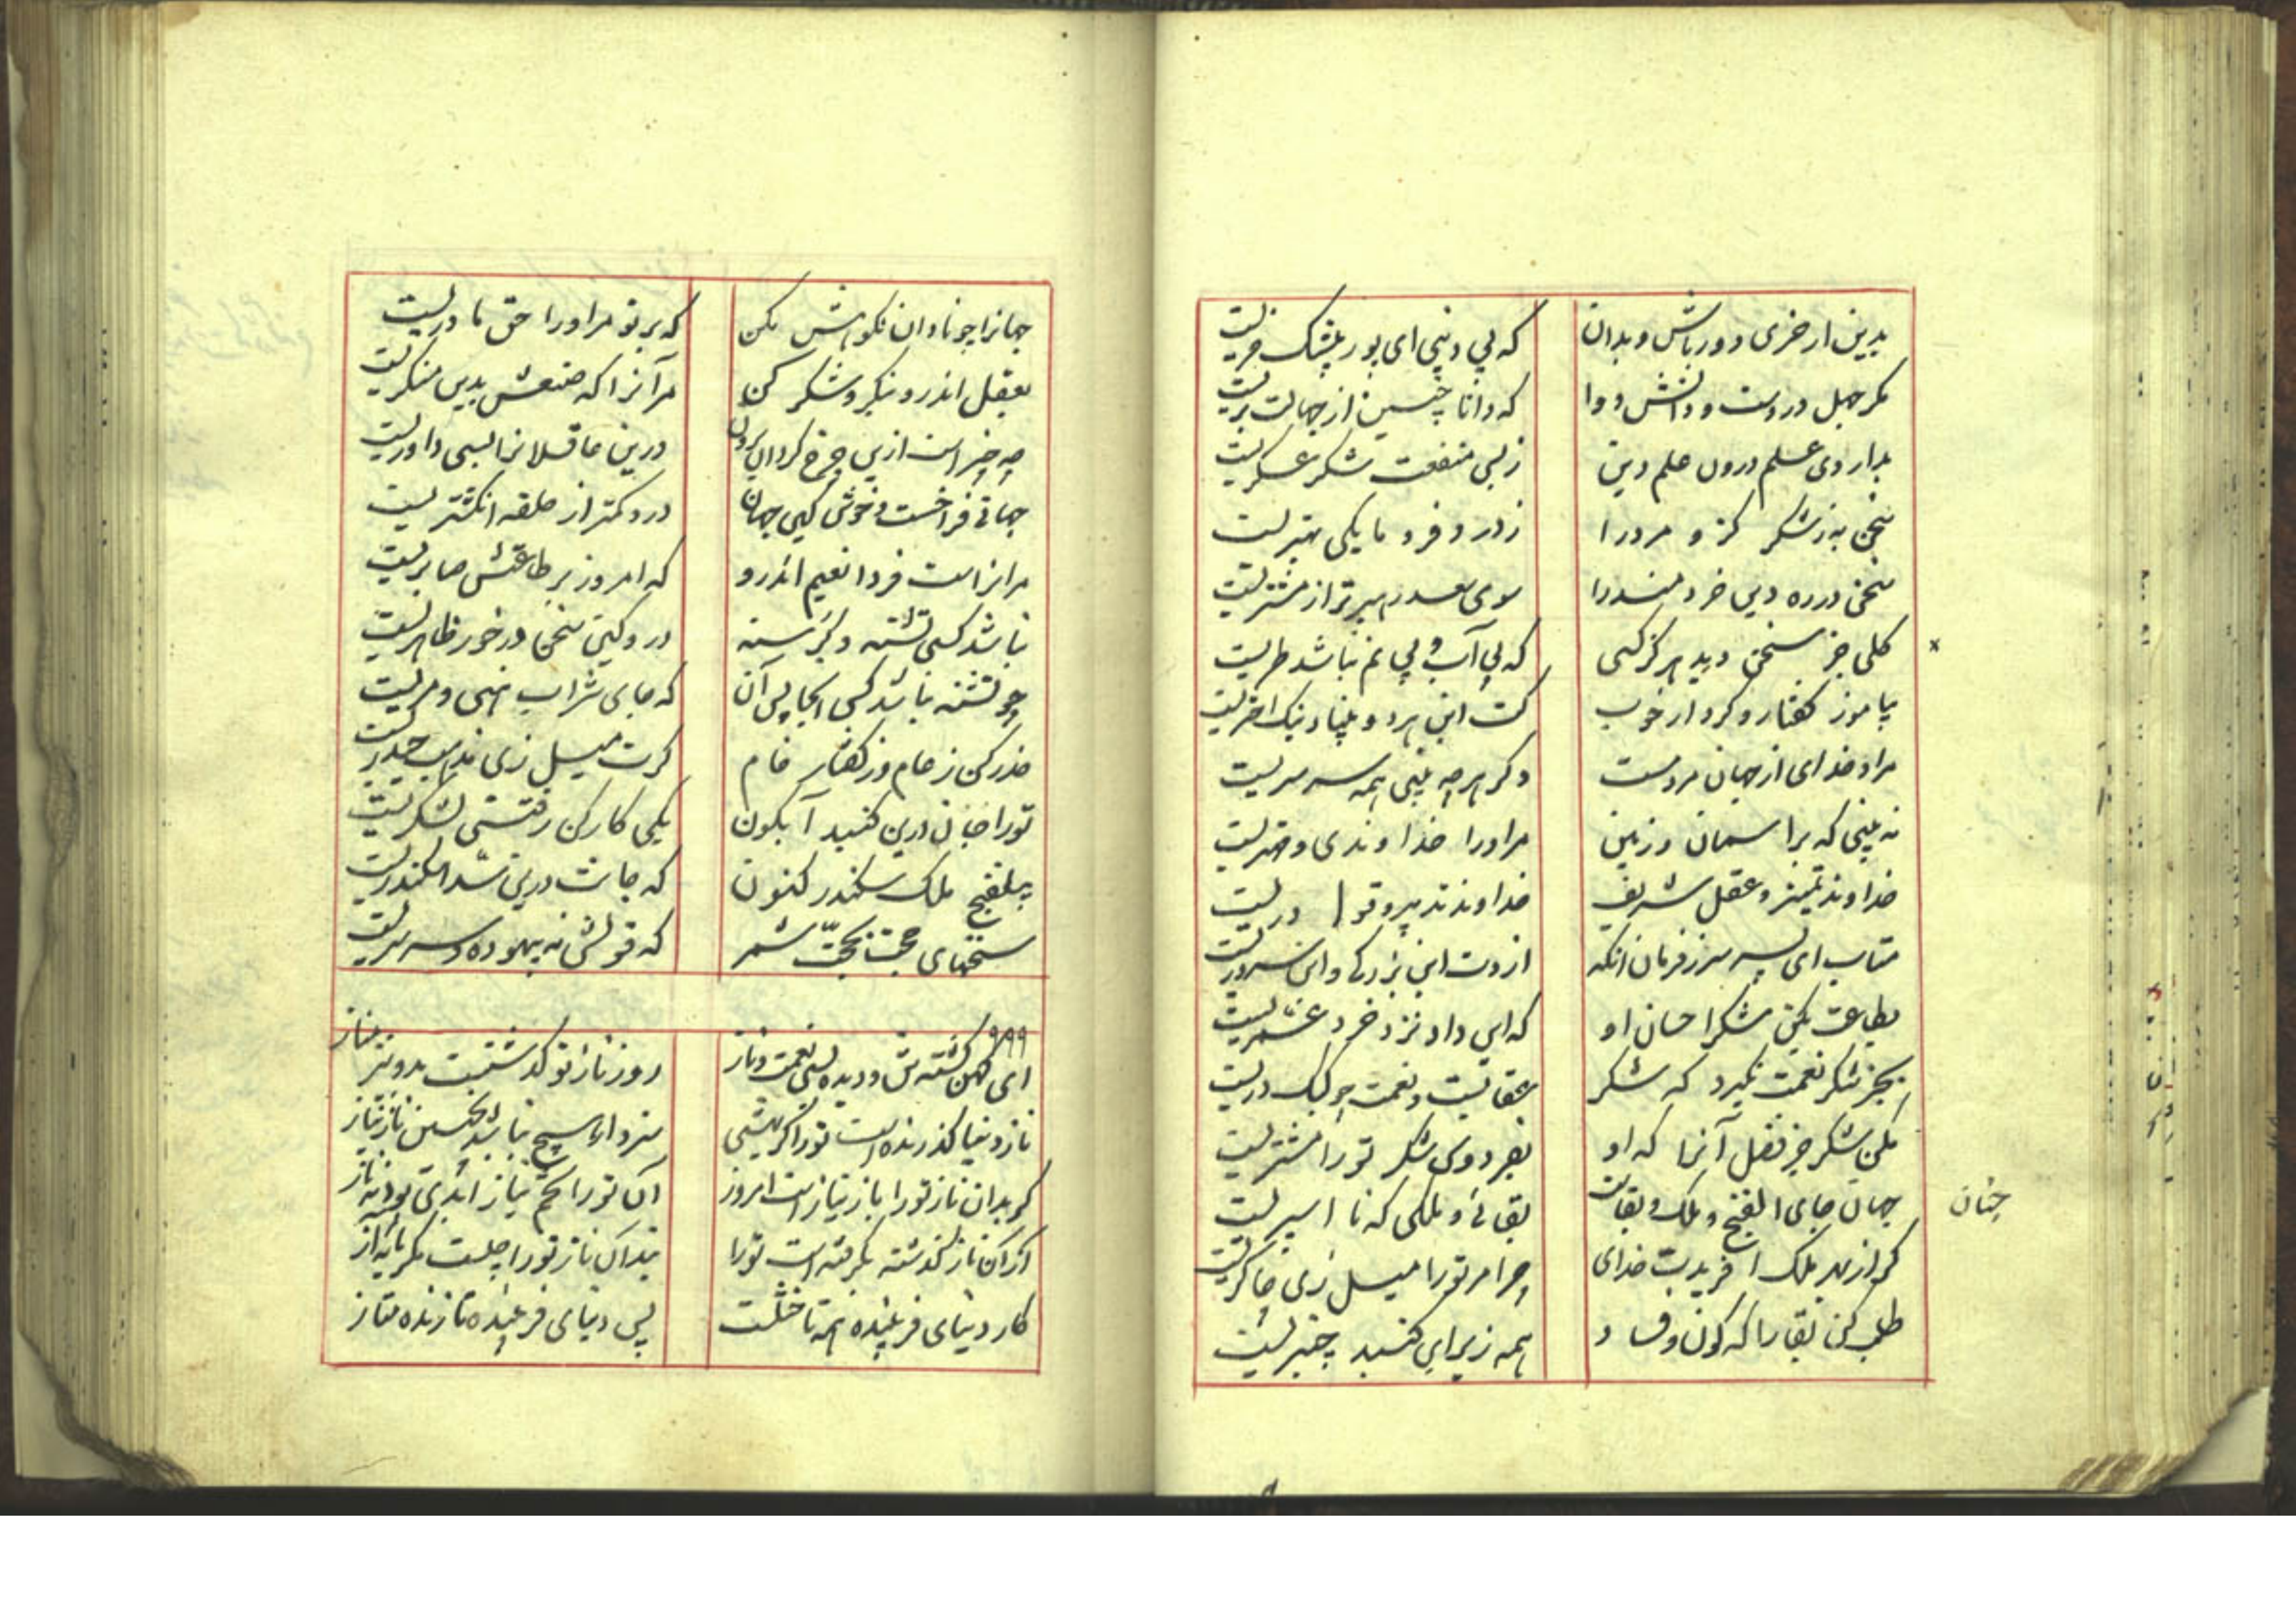 بدین از خری دور باش و بدان
که بی دینی ای پور بیشک خریست
مکر جهل دردست و دانش دوا
که دانا چنین از جهالت بریست
بداروی علم درون علم دین
ز بس منفعت شکر عسکریست
سخن به ز شکر کزو مرد را
ز درد فرومایکی بهتریست
سخن در ره دین خردمند را
سوی سعد رهبرتر از مشتریست
کلی جز سخن دید هرکز کسی
که بی آب و بی نم نباشد طریست
بیاموز کفتار و کردار خوب
کت این هر دو بنیاد نیک اختریست
مراد خدای از جهان مردمست
دکر هرچه بینی همه سرسریست
نه بینی که بر آسمان و زمین
مر او را خداوندی و مهتریست
خداوند تمییز و عقل شریف
خداوند تدبیر و قو ا دریست
متاب ای پسر سر ز فرمان آنکه
ازوت این بزرکی و این سروریست
بطاعت بکن شکر احسان او
که این داد نزد خرد عشریست
بجز شکر نعمت نکیرد که شکر
عقابیست و نعمت چو کبک دریست
بکن شکر جز فضل آنرا که او
بفردوس شکر تو را مشتریست
جهان جای الفنج و ملک و بقات
بقائی و ملکی که نا اسپریست
چنان
کر از بهر ملک آفریدت خدای
چرا مر تو را میل زی چاکریست
طلب کن بقا را که کون و فساد
همه زیر این کنبد چنبریست
جهانرا چو نادان نکوهش مکن
که بر تو مر او را حق مادریست
بعقل اندرو بنکر و شکر کن
مر آنرا که صنعش بدین منکریست
چه چیز است ازین چرخ کردان برون
درین عاقلانرا بسی داوریست
جهانی فراخست و خوش کاین جهان
درو کمتر از حلقه انکشتریست
مر آنراست فردا نعیم اندرو
که امروز بر طاعتش صابریست
نباشد کسی تشنه و کرسنه
درو کین سخن درخور ظاهریست
چو تشنه نباشد کسی آنجا پس آن
که جای شراب هنی و مریست
حذر کن ز عام و ز کفتار خام
کرت میل زی مذهب حیدریست
تو را جان درین کنبد آبکون
یکی کار کن رفتنی لشکریست
بیلفنج ملک سکندر کنون
که جانت درین سد اسکندریست
سخنهای حجت بحجت شمر
که قولش نه بیهوده و سرسریست
۹۹۹
ای کهن کشته تن و دیده بسی نعمت و ناز
روز ناز تو کذشتست بدو نیز مناز
ناز دنیا کذرنده است تو را کر بهشی
سزد ار هیچ نباشد بچنین ناز نیاز
کر بدان ناز تو را باز نیاز است امروز
آن تو را تخم نیاز ابدی بود نه ناز
از آن ناز کذشته بکرفته است تو را
بند آن ناز تو را چیست مکر مایه آز
کار دنیای فریبنده همه تاختنست
پس دنیای فریبنده تازنده متاز